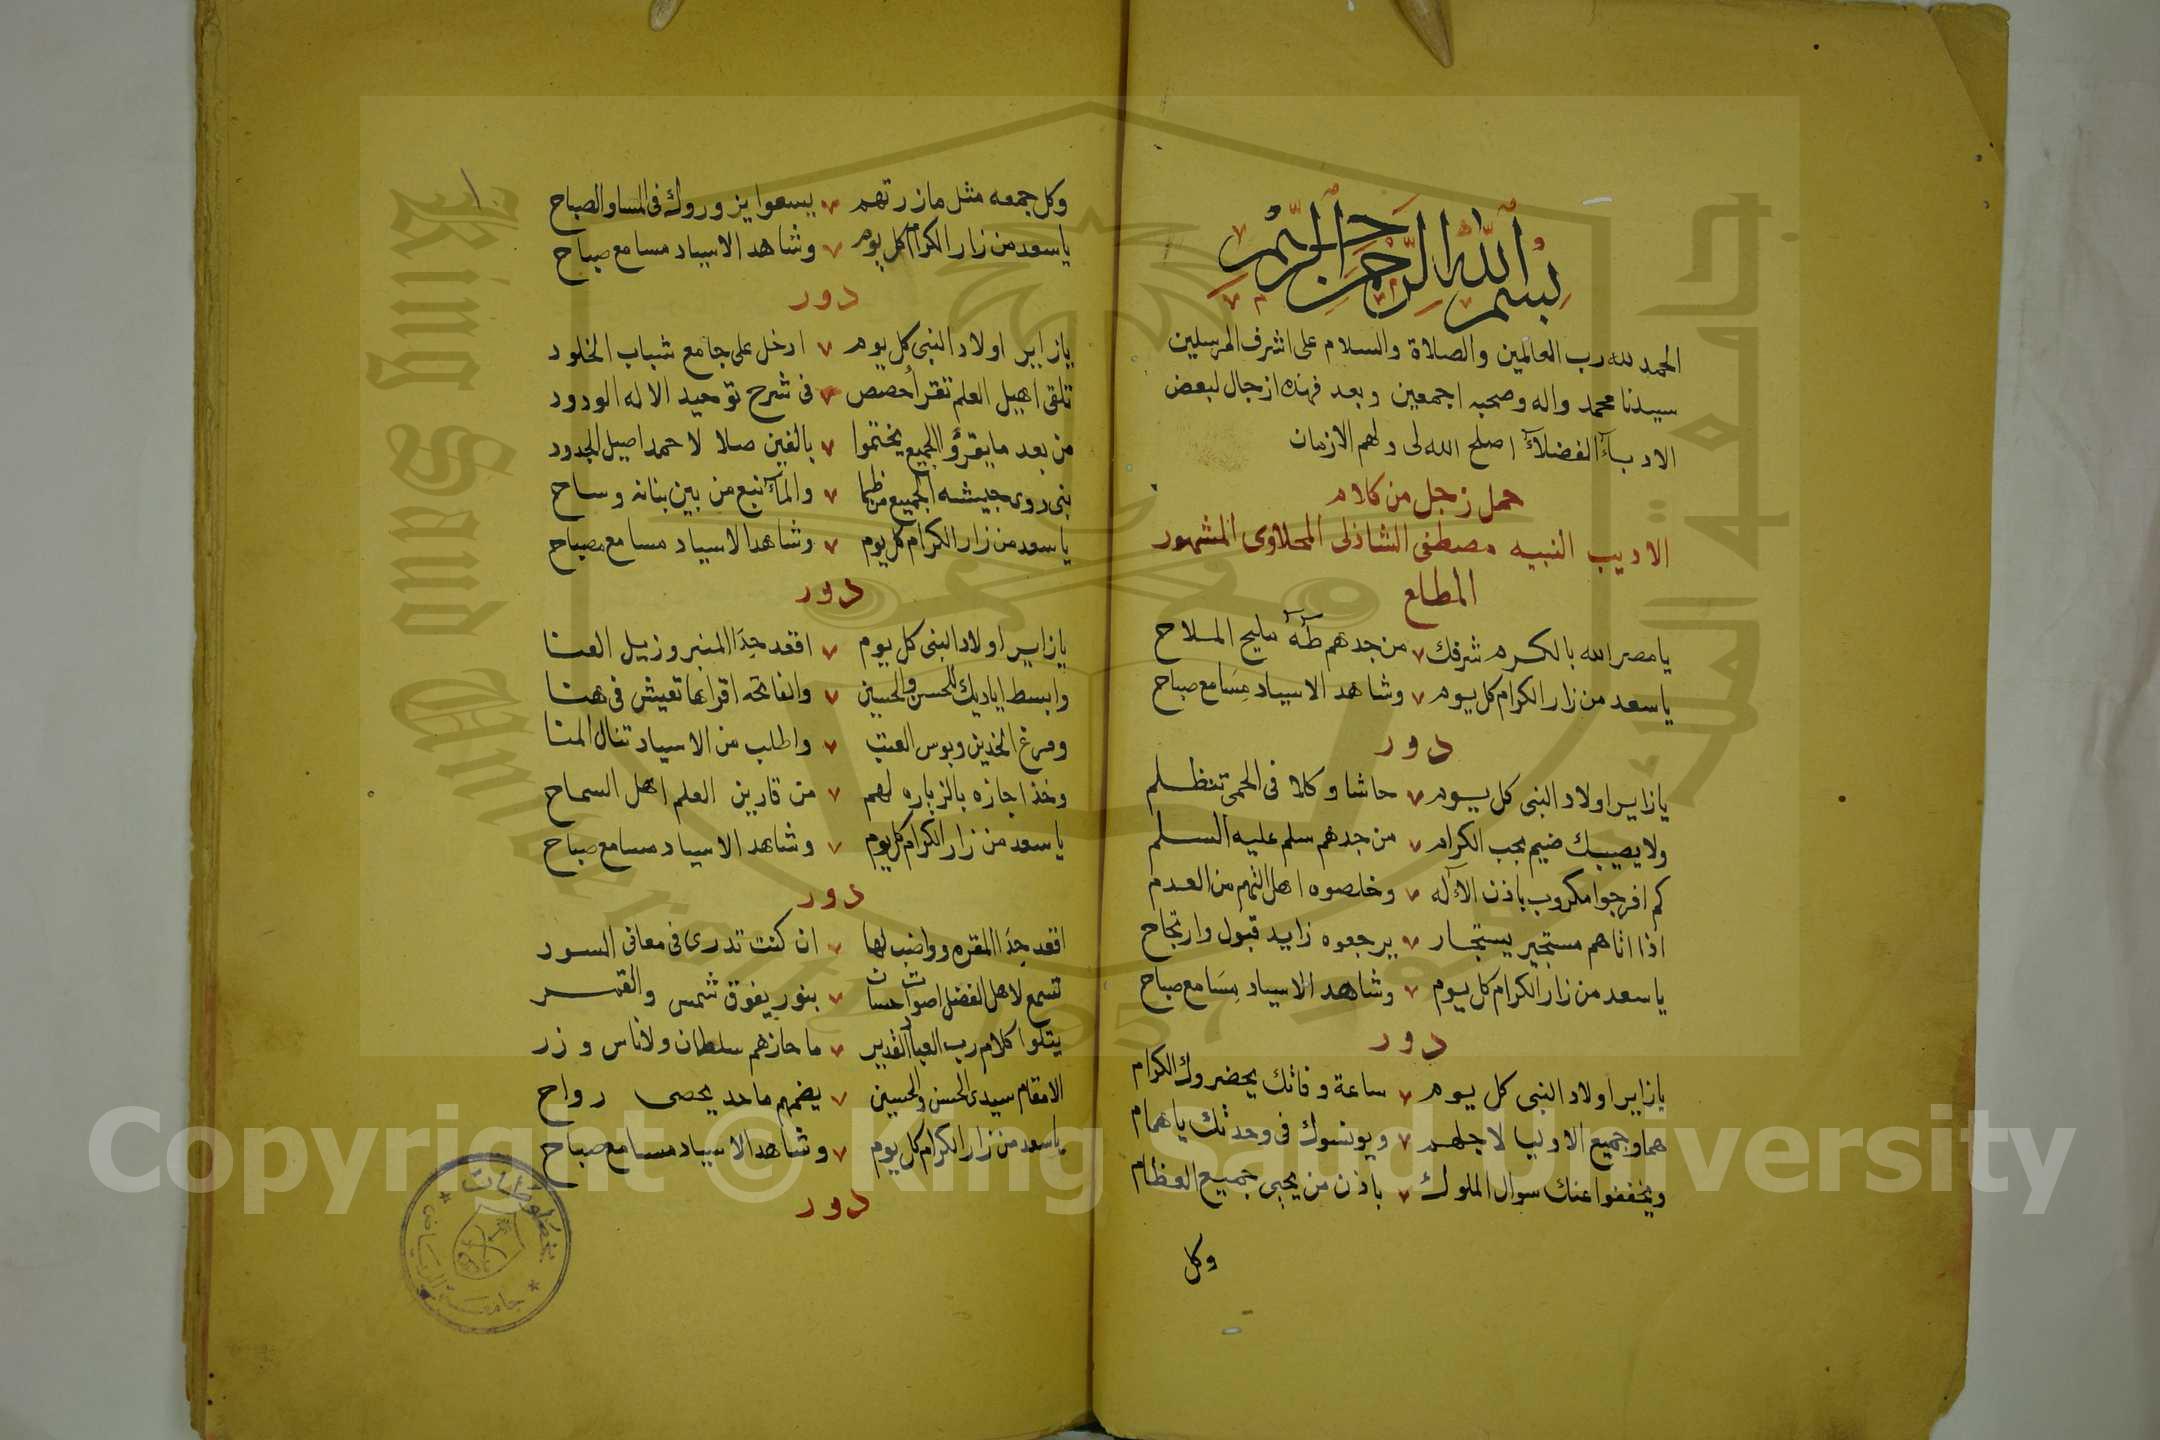 بسم الله الرحمن الرحيم
الحمد لله رب العالمين والصلاة والسلام على اشرف المرسلين
سيدنا محمد واله وصحبه اجمعين وبعد فهذه ازجال لبعض
الادبآء الفضلآء اصلح الله لى ولهم الازمان
حمل زجل من كلام
الاديب النبيه مصطفى الشاذلى المحلاوى المشهور
المطلع
يا مصر الله بالكرم شرفك ٧ من جدهم طه مليح الملاح
يا سعد من زار الكرام كل يوم ٧ وشاهد الاسياد مسا مع صباح
دور
يا زاير اولاد النبى كل يوم ٧ حاشا وكلا فى الحمى تنظلم
ولا يصيبك ضيم بحب الكرام ٧ من جدهم سلم عليه السلم
كم افرجوا مكروب باذن الاله ٧ وخلصوه اهل النهم من العدم
اذا اتاهم مستجير يستجار ٧ يرجعوه زايد قبول وارتجاح
يا سعد من زار الكرام كل يوم ٧ وشاهد الاسياد مسا مع صباح
دور
يا زاير اولاد النبى كل يوم ٧ ساعة وفاتك يحضروك الكرام
هما وجميع الاوليا لاجلهم ٧ ويونسوك فى وحدتك يا همام
ويخففوا عنك سوال الملوك ٧ باذن من يحيى جميع العظام
وكل
وكل جمعه مثل ما زرتهم ٧ يسعوا يزوروك فى المسا والصباح
يا سعد من زار الكرام كل يوم ٧ وشاهد الاسياد مسا مع صباح
دور
يا زاير اولاد النبى كل يوم ٧ ادخل على جامع شباب الخلود
تلقى اهيل العلم تقرأ حصص ٧ فى شرح توحيد الاله الودود
من بعد ما يقرؤا الجميع يختموا ٧ بالفين صلا لاحمد اصيل الجدود
نبى روى جيشه الجميع من ظما ٧ والمآ نبع من بين بنانه وساح
يا سعد من زار الكرام كل يوم ٧ وشاهد الاسياد مسا مع صباح
دور
يا زاير اولاد النبى كل يوم ٧ اقعد حدا المنبر وزيل العنا
وابسط اياديك للحسن والحسين ٧ والفاتحه اقراها تعيش فى هنا
ومرغ الخدين وبوس العتب ٧ واطلب من الاسياد تنال المنا
وخذ اجازه بالزياره لهم ٧ من قارين العلم اهل السماح
يا سعد من زار الكرام كل يوم ٧ وشاهد الاسياد مسا مع صباح
دور
اقعد حدا المقره وواضب لها ٧ ان كنت تدرى فى معانى السور
تسمع لاهل الفضل اصوات حسان ٧ بنور يفوق شمس والقمر
يتلوا كلام رب العباد القدير ٧ ما حازهم سلطان ولا ناس وزر
الا مقام سيدى الحسن والحسين ٧ يضمهم ما حد يحصى رواح
يا سعد من زار الكرام كل يوم ٧ وشاهد الاسياد مسا مع صباح
دور
مخطوطات
جامعة الرياض
جامعة الملك سعود
King Saud University
1957
Copyright © King Saud University